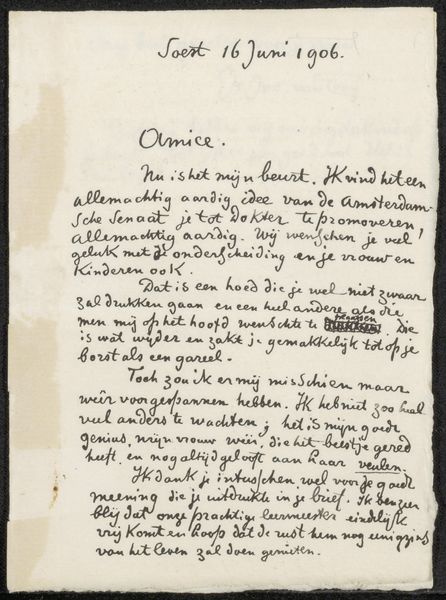 Soest 16 Juni 1906.
Amice.
Nu is het mijn beurt. Ik vind het een
allemachtig aardig idee van de Amsterdam-
sche Senaat je tot dokter te promoveren!
allemachtig aardig. Wij wenschen je veel
geluk met de onderscheiding en je vrouw en
Kinderen ook.
Dat is een hoed die je wel niet zwaar
zal drukken gaan en een heel andere als die
men mij op het hoofd wenschte te plaatsen die
is wat wijder en zakt je gemakkelijk tot op je
borst als een gareel.
Toch zou ik er mij misschien maar
weêr voorgespannen hebben. Ik heb niet zoo heel
veel anders te wachten; het is mijn goede
genius, mijn vrouw weêr, die het beestje gered
heeft en nog altijd gelooft aan haar veulen.
Ik dank je intusschen wel voor je goede
meening die je uitdrukte in je brief. Ik ben zeer
blij dat onze prachtige leermeester eindelijk
vrij komt en hoop dat de rust hem nog eenigszins
van het leven zal doen genieten.